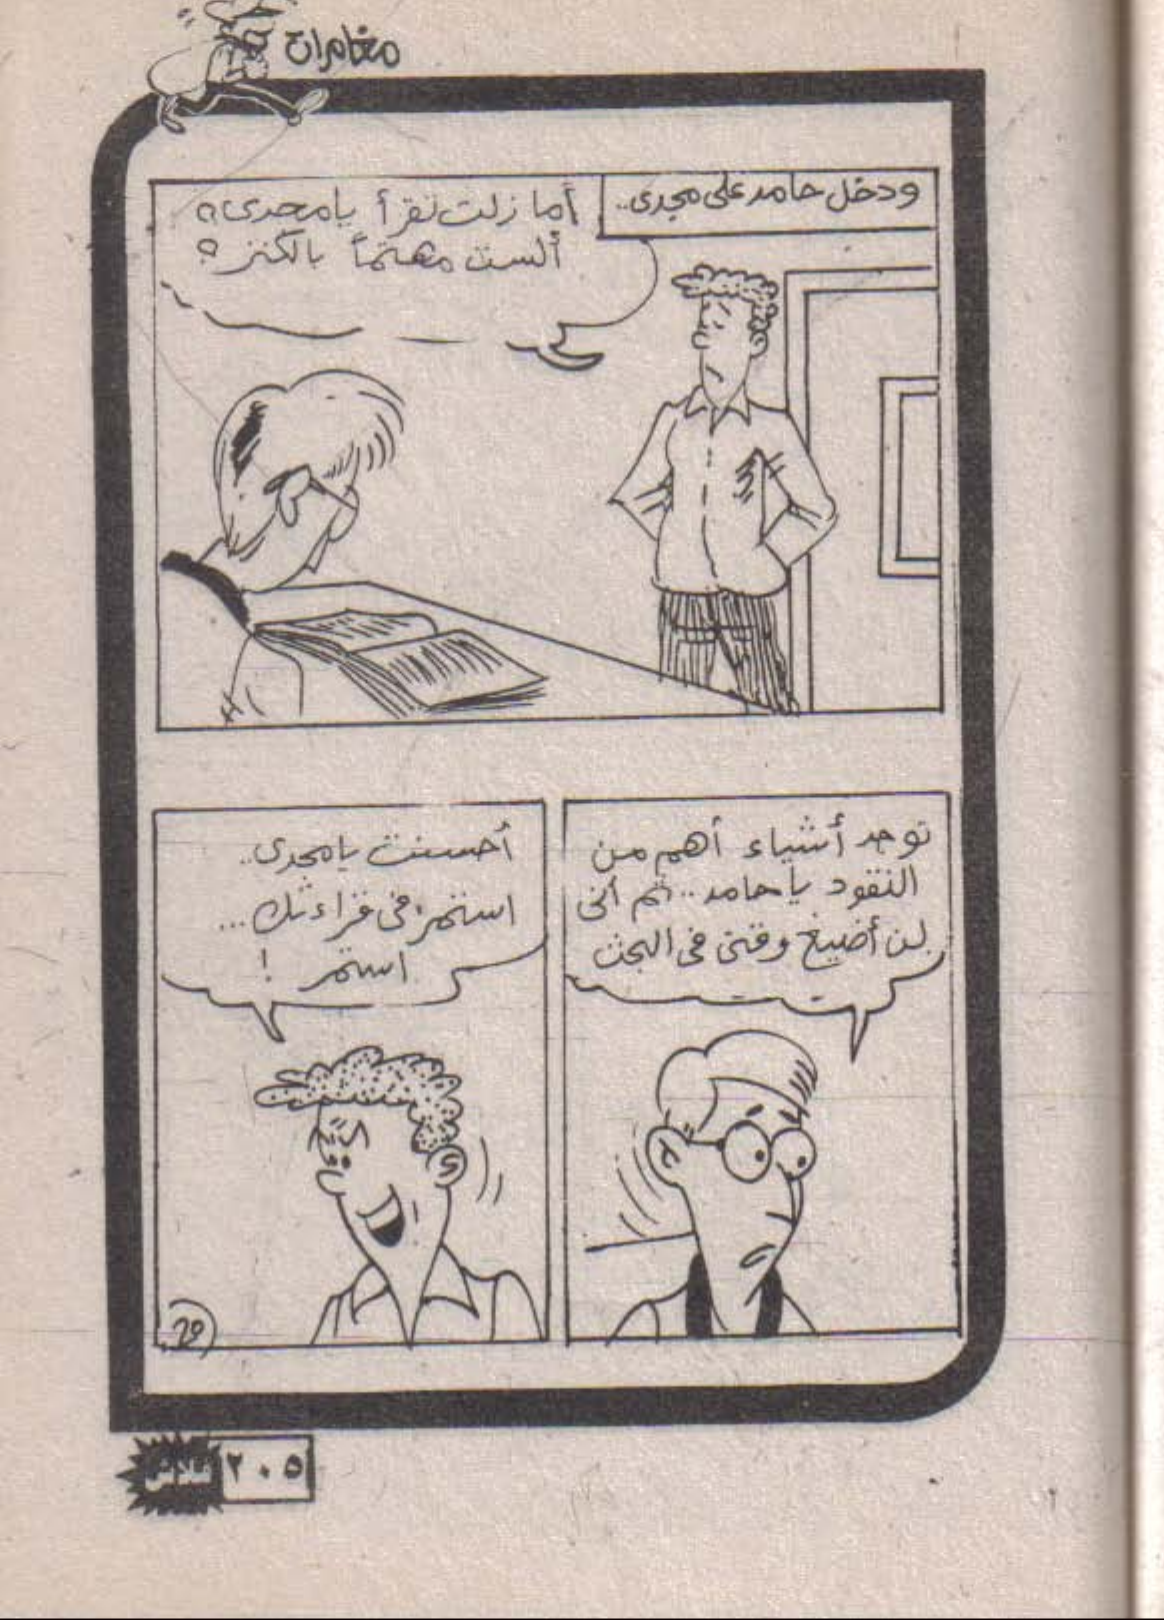 مغامرات
ودخل حامد على مجدى..
أما زلت تقرأ يا مجدى؟
ألست مهتماً بالكنز؟
توجد أشياء أهم من
النقود يا حامد.. ثم أنى
لن أضيع وقتى فى البحث
أحسنت يا مجدى..
استمر فى قراءتك...
استمر !
فلاش
٢٠٥